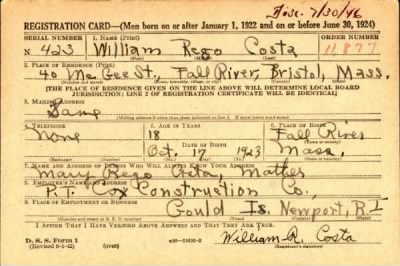 Disc. 7/30/46
REGISTRATION CARD—(Men born on or after January 1, 1922 and on or before June 30, 1924)
SERIAL NUMBER 1. NAME (Print) ORDER NUMBER
N 423 William Rego Costa 11877
(First) (Middle) (Last)
2. PLACE OF RESIDENCE (Print)
40 Mc Gee St., Fall River, Bristol, Mass.
[THE PLACE OF RESIDENCE GIVEN ON THE LINE ABOVE WILL DETERMINE LOCAL BOARD
JURISDICTION; LINE 2 OF REGISTRATION CERTIFICATE WILL BE IDENTICAL]
3. MAILING ADDRESS
Same
4. TELEPHONE 5. AGE IN YEARS 6. PLACE OF BIRTH
None 18 Fall River
DATE OF BIRTH
Oct. 17 1923 Mass.
7. NAME AND ADDRESS OF PERSON WHO WILL ALWAYS KNOW YOUR ADDRESS
Mary Rego Costa, Mother
8. EMPLOYER'S NAME AND ADDRESS
P.T. Cox Construction Co.,
9. PLACE OF EMPLOYMENT OR BUSINESS
Gould Is. Newport, R.I
I AFFIRM THAT I HAVE VERIFIED ABOVE ANSWERS AND THAT THEY ARE TRUE.
D. S. S. Form 1
(over)
William R. Costa
(Registrant's signature)